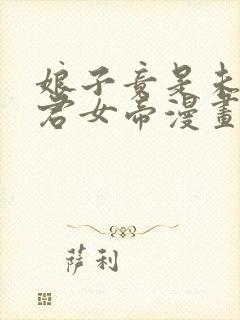 娘子竟是未
君女帝漫畫
萨利